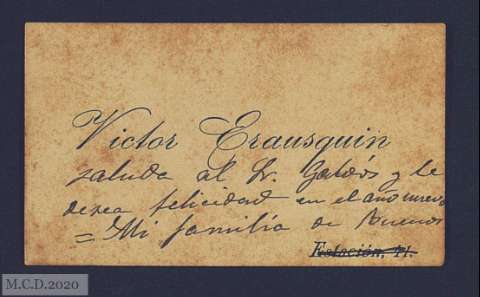 Victor Erausquin
saluda al Sr. Galdós y le
desea felicidad en el año nuevo
= Mi familia de Buenos
Estación, 11.
M.C.D.2020